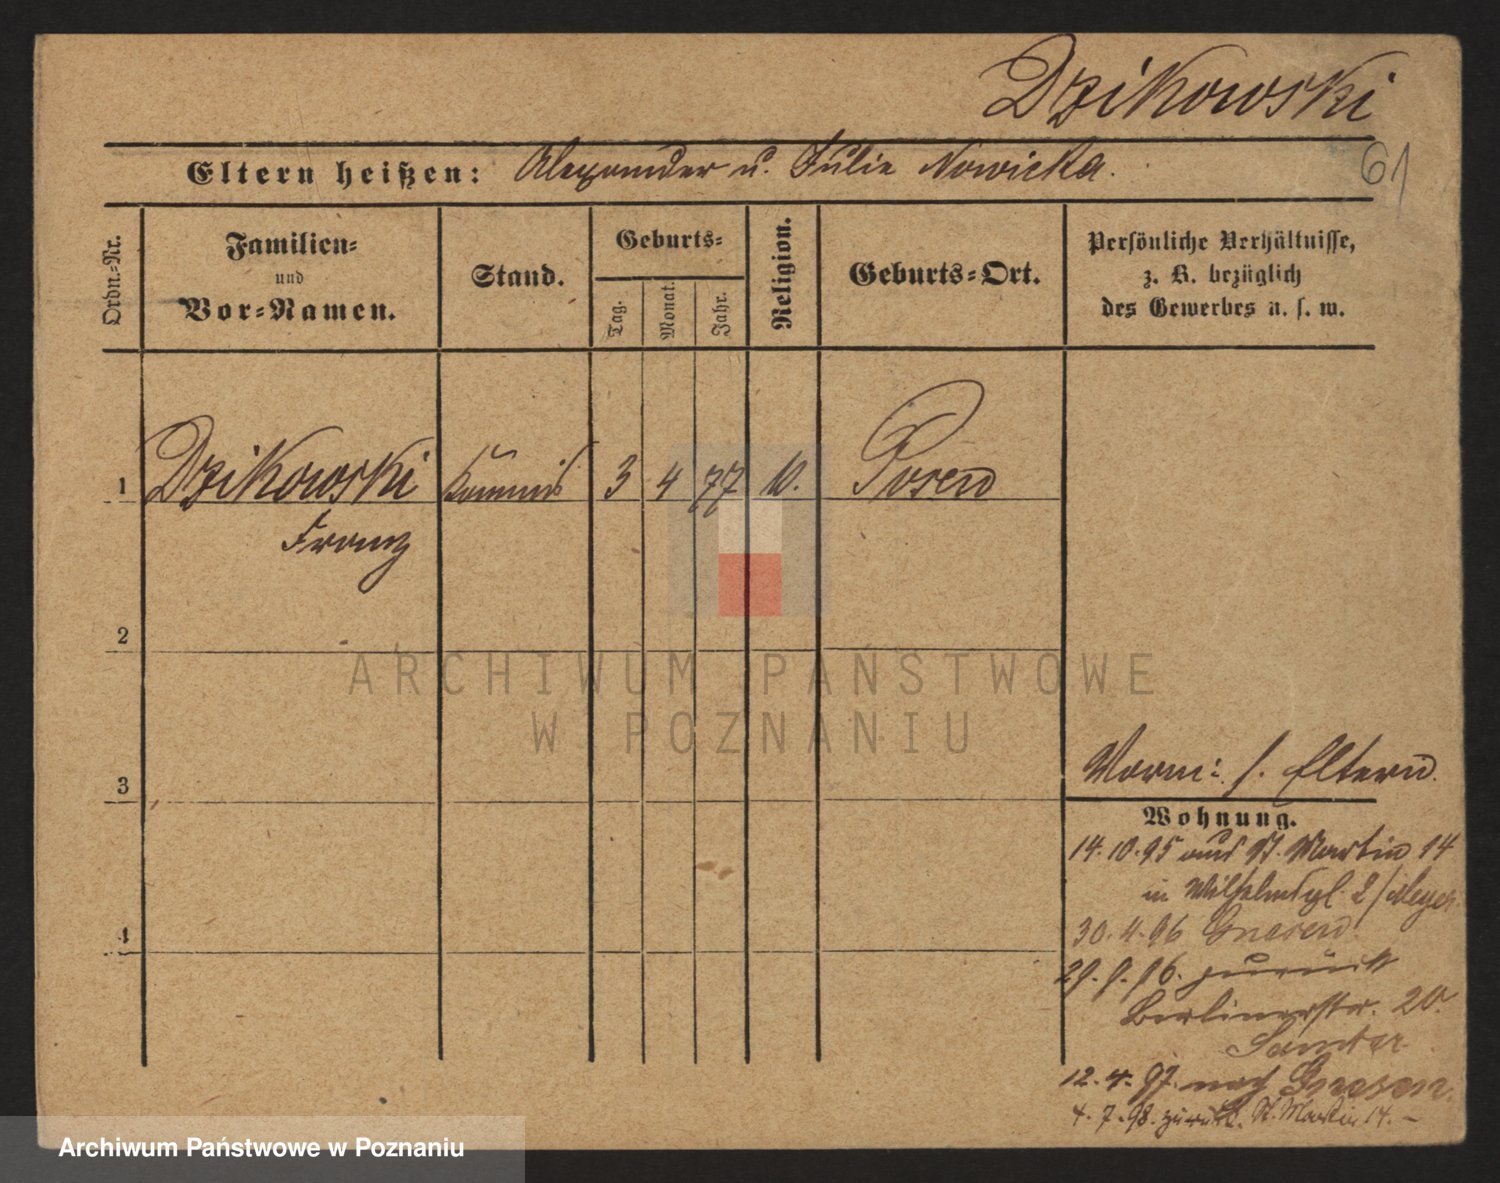 Dzikowski
61
Eltern heißen: Alexander u. Julie Nowicka.
Ordn.-Nr.
Familien-
und
Vor-Namen.
Stand.
Geburts-
Tag.
Monat.
Jahr.
Religion.
Geburts-Ort.
Persönliche Verhältnisse,
z. B. bezüglich
des Gewerbes u. s. w.
1 Dzikowski Kommis 3 4 77 Posen
Franz
2
ARCHIWUM PAŃSTWOWE
W POZNANIU
3
4
Vorm: s. Eltern
Wohnung.
14.10.95 aus St. Martin 14
in Wilhelmspl. 2 / Meyer
30.4.96 Gnesen
29.9.96. zurück
Berlinerstr. 20.
Samter
12.4.97. nach Gnesen.
4.7.98. zurück. St. Martin 14. –
Archiwum Państwowe w Poznaniu